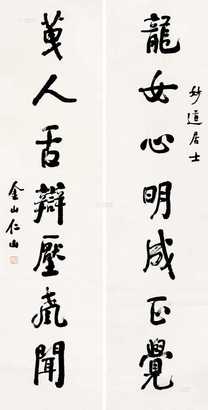 妙道居士
龍女心明成正覺
萬人舌辯壓聞
金山仁山